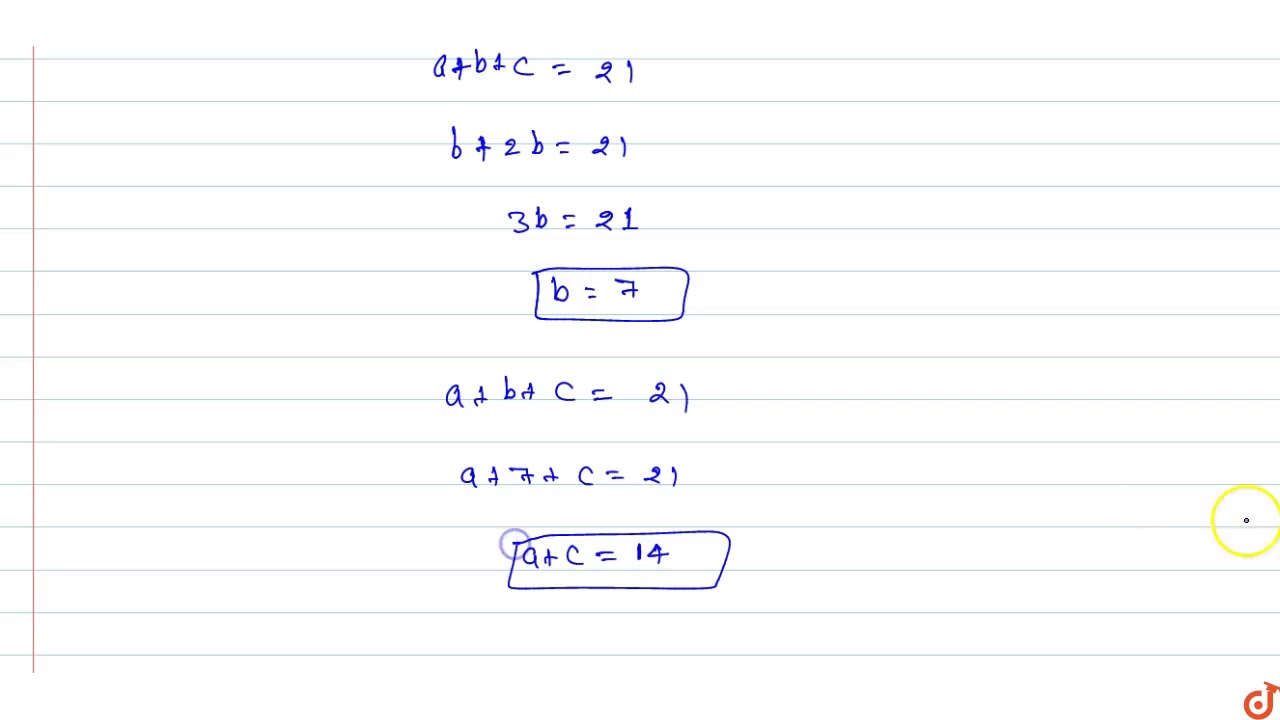 a+b+c = 21
b+2b = 21
3b = 21
b = 7
a+b+c = 21
a+7+c = 21
a+c = 14